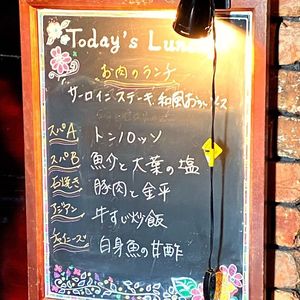 Today's Lun
お肉のランチ
サーロインステーキ 和風おろしソース
スパA トンノロッソ
スパB 魚介と大葉の塩
石焼き 豚肉と金平
アジアン 牛すじ炒飯
チャイニーズ 白身魚の甘酢